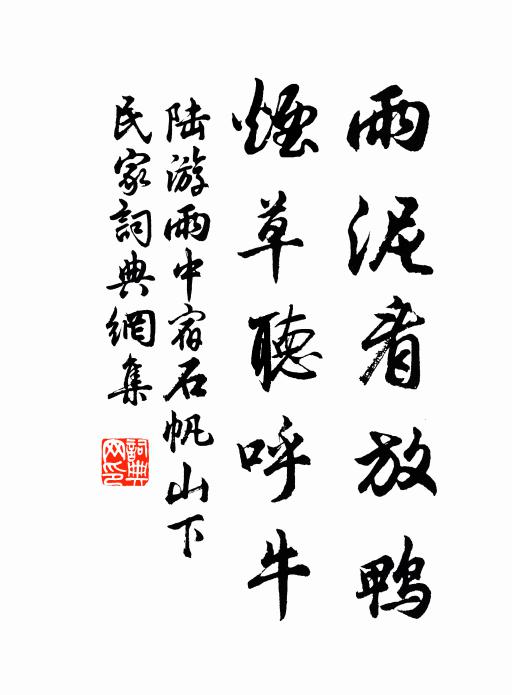 雨泥看放鴨
煙草聽呼牛
陆游雨中宿石帆山下
民家詞典網集
詞典
网印